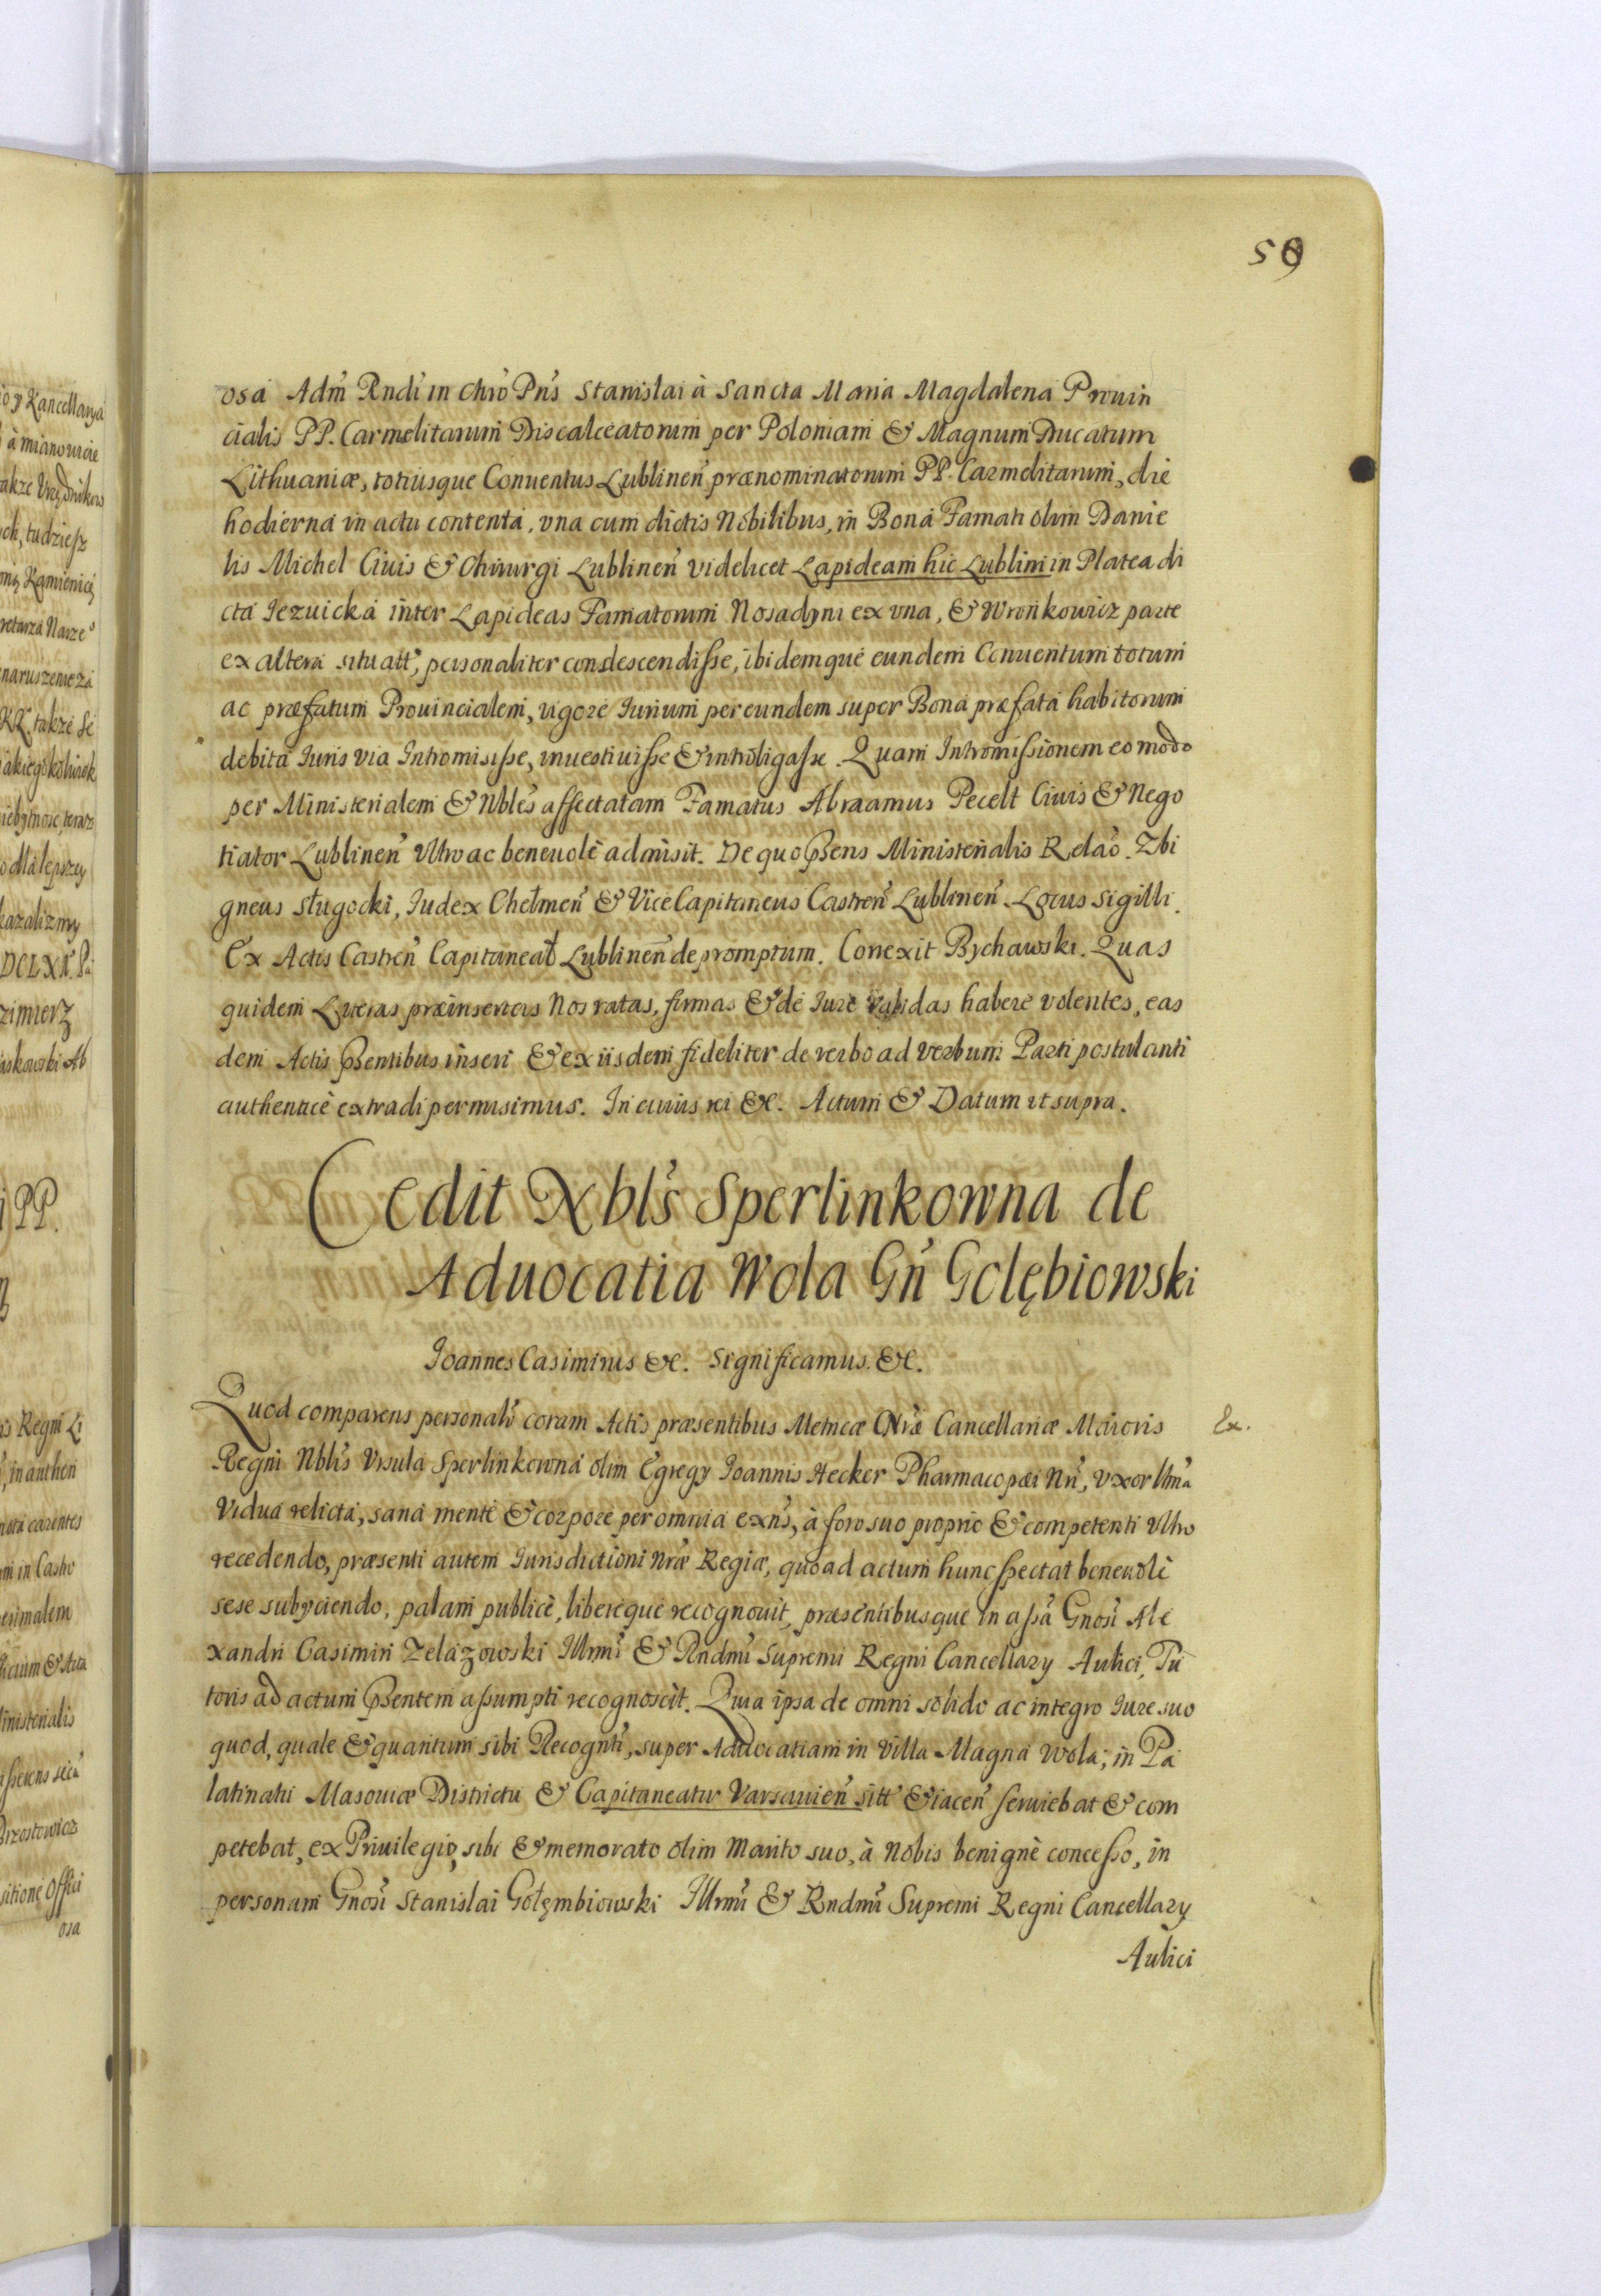 59
osa Adm̃ Rndi in Chrõ Pñs Stanislai à Sancta Maria Magdalena Prouin
cialis PP. Carmelitarum Discalceatorum per Poloniam & Magnum Ducatum
Lithuaniæ, totiusque Conuentus Lublineñ prænominatorum PP. Carmelitarum, die
hodierna in actu contenta, vna cum dictis Nobilibus, in Bona Famati olim Danie
lis Michel Ciuis & Chirurgi Lublineñ videlicet Lapideam hic Lublini in Platea di
cta Iezuicka inter Lapideas Famatorum Nosadyni ex vna, & Wronkowicz parte
ex altera situatt, personaliter condescendisse, ibidemque eundem Conuentum totum
ac præfatum Prouincialem, vigore Iurium per eundem super Bona præfata habitorum
debita Iuris via Intromisisse, inuestiuisse & introligasse. Quam Intromissionem eo modo
per Ministerialem & Nbles affectatam Famatus Abraamus Pecelt Ciuis & Nego
tiator Lublineñ Vltro ac beneuolè admisit. De quo Pñsens Ministerialis Relaõ. Zbi
gneus Sługocki, Iudex Chełmeñ & Vice Capitaneus Castreñ Lublineñ. Locus Sigilli.
Ex Actis Castreñ Capitaneat Lublineñ depromptum. Correxit Bychawski. Quas
quidem Literas præinsertas Nos ratas, firmas & de Iure validas habere volentes, eas
dem Actis Pñsentibus inseri & ex iisdem fideliter de verbo ad verbum Parti postulanti
authenticè extradi permisimus. In cuius rei &c. Actum & Datum vt supra.
Cedit Nbls Sperlinkowna de
Aduocatia Wola Gñ Golębiowski
Joannes Casimirus &c. Significamus. &c.
Quod comparens personalr coram Actis præsentibus Metricæ Nræ Cancellariæ Maioris
Ex.
Regni Nblis Vrsula Sperlinkowna olim Egregy Joannis Hecker Pharmacopæi Nrĩ, vxor Vltma
Vidua relicta, sana mente & corpore per omnia exñs, à foro suo proprio & competenti Vltro
recedendo, præsenti autem Iurisdictioni Nræ Regiæ, quoad actum hunc spectat beneuolè
sese subyciendo, palam publicè, liberèque recognouit, præsentibusque in assã Gnosi Ale
xandri Casimiri Zelazowski Illrmi & Rndmi Supremi Regni Cancellary Aulici, Tu
toris ad actum Pñsentem assumpti recognoscit. Quia ipsa de omni solido ac integro Iure suo
quod, quale & quantum sibi Recognti, super Aduocatiam in Villa Magna Wola, in Pa
latinatu Masouiæ Districtu & Capitaneatu Varsauieñ sitt & iaceñ seruiebat & com
petebat, ex Priuilegio, sibi & memorato olim Marito suo, à Nobis benignè concesso, in
personam Gnosi Stanislai Gołęmbiowski Illrmi & Rndmi Supremi Regni Cancellary
Aulici